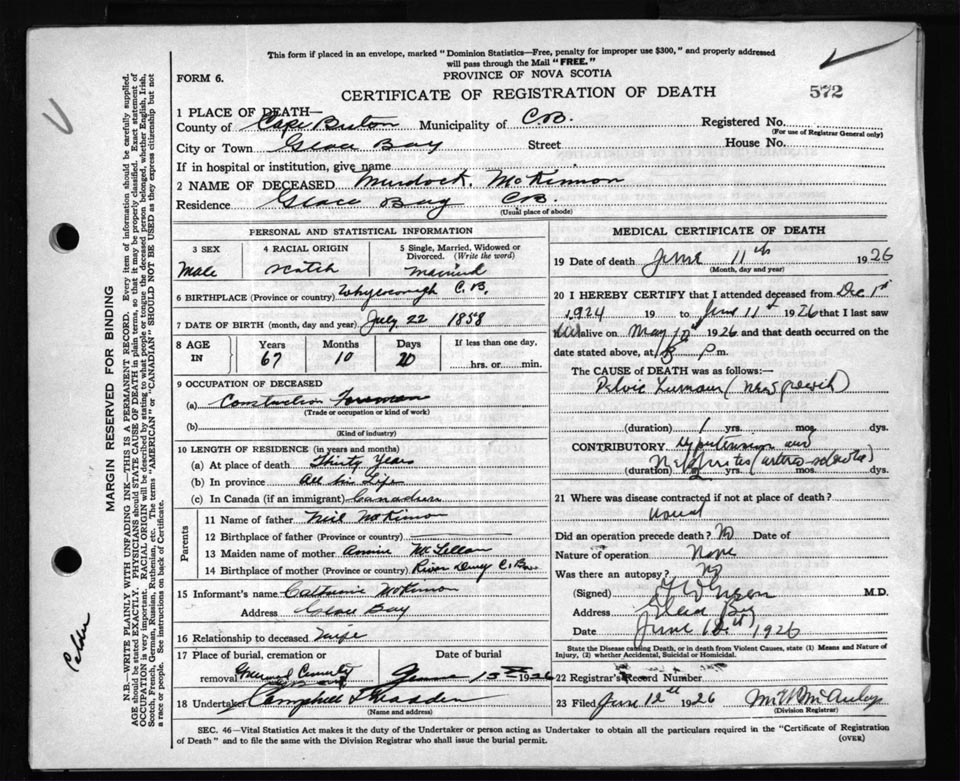 This form if placed in an envelope, marked "Dominion Statistics—Free, penalty for improper use $300," and properly addressed
will pass through the Mail "FREE."
FORM 6.
PROVINCE OF NOVA SCOTIA
CERTIFICATE OF REGISTRATION OF DEATH
572
1 PLACE OF DEATH—
County of Cape Breton Municipality of C.B. Registered No.
(For use of Registrar General only)
City or Town Glace Bay Street House No.
If in hospital or institution, give name
2 NAME OF DECEASED Murdock McKinnon
Residence Glace Bay C.B.
(Usual place of abode)
PERSONAL AND STATISTICAL INFORMATION
3 SEX 4 RACIAL ORIGIN 5 Single, Married, Widowed or Divorced. (Write the word)
Male Scotch Married
6 BIRTHPLACE (Province or country) Whycocough C.B.
7 DATE OF BIRTH (month, day and year) July 22 1858
8 AGE IN Years Months Days If less than one day,
67 10 20 hrs. or min.
9 OCCUPATION OF DECEASED
(a) Construction Foreman
(Trade or occupation or kind of work)
(b)
(Kind of industry)
10 LENGTH OF RESIDENCE (in years and months)
(a) At place of death Thirty Years
(b) In province All his Life
(c) In Canada (if an immigrant) Canadian
Parents
11 Name of father Neil McKinnon
12 Birthplace of father (Province or country)
13 Maiden name of mother Annie McLellan
14 Birthplace of mother (Province or country) River C. B.
15 Informant's name Catherine McKinnon
Address Glace Bay
16 Relationship to deceased Wife
17 Place of burial, cremation or Date of burial
removal Greenwood June 13th 1926
18 Undertaker Campbell
(Name and address)
MEDICAL CERTIFICATE OF DEATH
19 Date of death June 11th 1926
(Month, day and year)
20 I HEREBY CERTIFY that I attended deceased from Dec 1st
1924 19 to June 11th 1926 that I last saw
alive on May 1926 and that death occurred on
date stated above, at p m.
The CAUSE of DEATH was as follows:—
Pelvic Tumour
(duration) 1 yrs. mos. dys.
CONTRIBUTORY Hypertension and
Nephritis
(duration) yrs. mos. dys.
21 Where was disease contracted if not at place of death?
usual
Did an operation precede death? No Date of
Nature of operation None
Was there an autopsy? No
(Signed) M.D.
Address Glace Bay
Date June 1926
State the Disease causing Death, or in death from Violent Causes, state (1) Means and Nature of
Injury, (2) whether Accidental, Suicidal or Homicidal.
22 Registrar's Record Number
23 Filed June 12th 1926 McAuley
(Division Registrar)
SEC. 46—Vital Statistics Act makes it the duty of the Undertaker or person acting as Undertaker to obtain all the particulars required in the "Certificate of Registration
of Death" and to file the same with the Division Registrar who shall issue the burial permit.
(OVER)
MARGIN RESERVED FOR BINDING
N.B.—WRITE PLAINLY WITH UNFADING INK—THIS IS A PERMANENT RECORD. Every item of information should be carefully supplied.
AGE should be stated EXACTLY. PHYSICIANS should STATE CAUSE OF DEATH in plain terms, so that it may be properly classified. Exact statement of
OCCUPATION is very important. RACIAL ORIGIN will be described by stating to what people or tongue the deceased person belonged, whether English, Irish,
Scotch, French, German, Russian, Ruthenian, etc. The terms "AMERICAN" or "CANADIAN" SHOULD NOT BE USED as they express citizenship but not
a race or people. See instructions on back of Certificate.